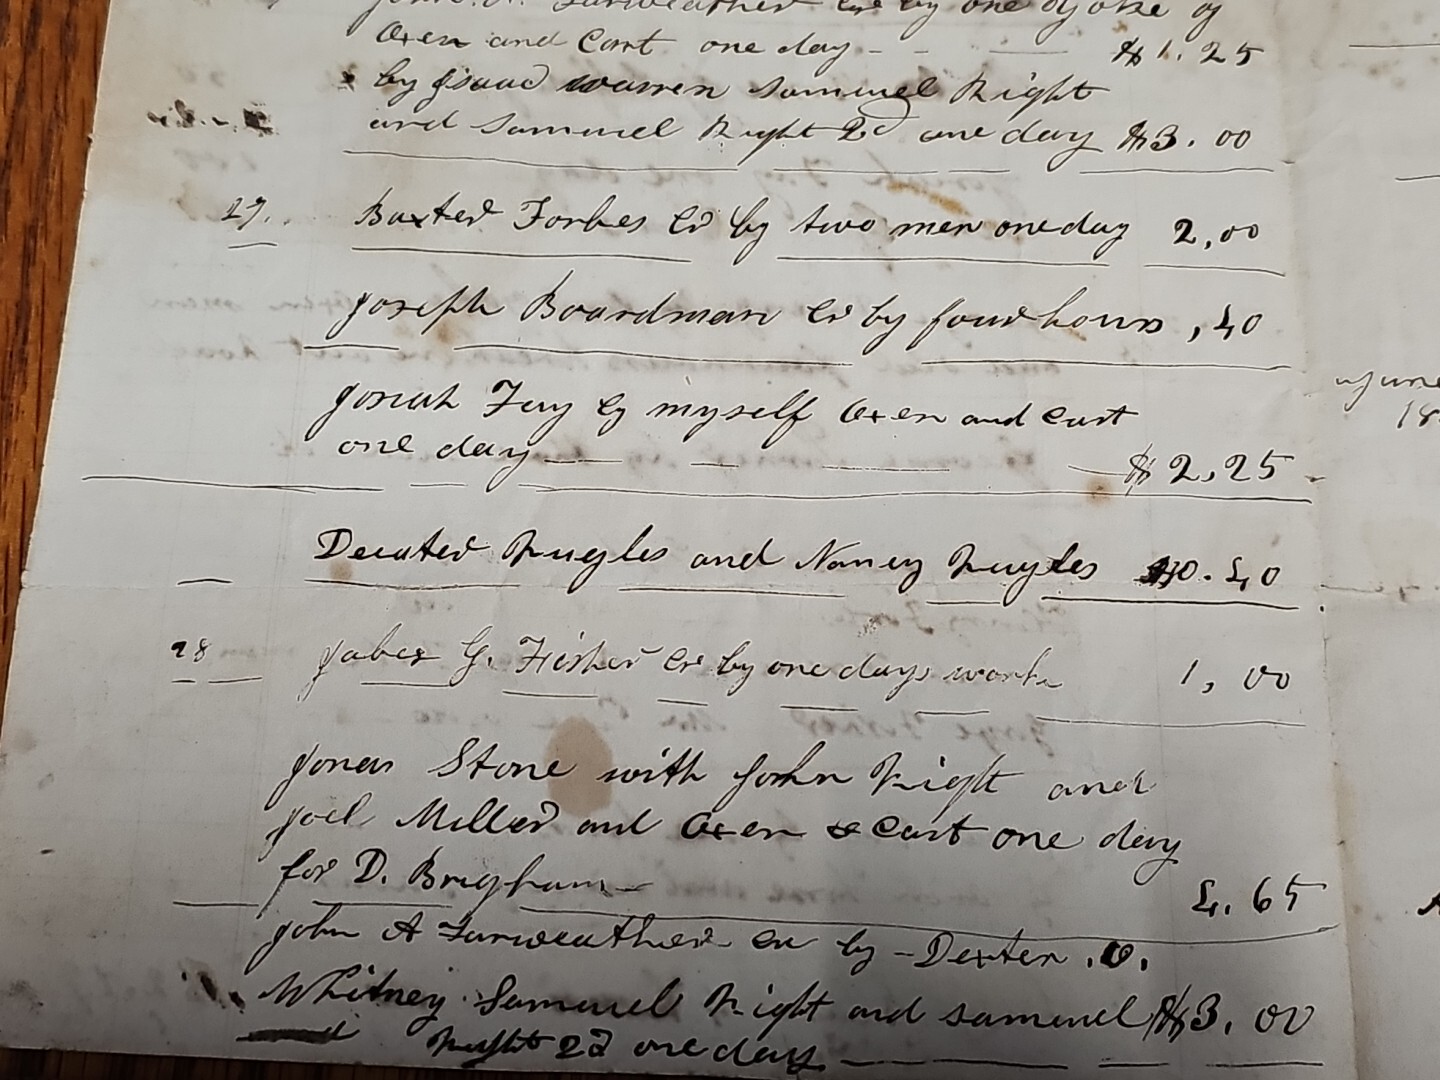 John A. Farweather Cr by one Yoke of
Oxen and Cart one day - - — $1.25
by Isaac warren Samuel Right
and Samuel Right 2d one day $3.00
27. Baxter Forbes Cr by two men one day 2,00
Joseph Boardman Cr by four hours ,40
Josiah Fay by myself Oxen and Cart
one day — $2,25
and Nancy $0.40
28 Jabez G. Fisher Cr by one days work 1,00
Jonas Stone with John Right and
Joel Miller and Oxen & Cart one day
for D. Brigham 4.65
John A Farweather Cr by - Dexter .O.
Whitney Samuel Right and Samuel $3.00
Right 2d one day
June
18